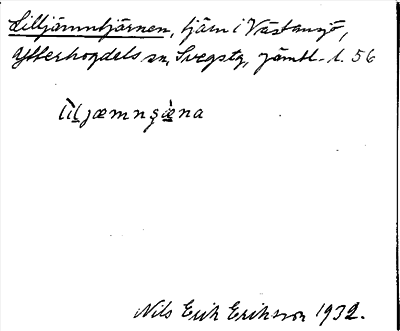 Lilljämntjärnen, tjärn i Västansjö,
Ytterhogdals sn, Svegs tg, Jämtl. l. 56
lìljæmnʂæ̀na
Nils Erik Eriksson 1932.